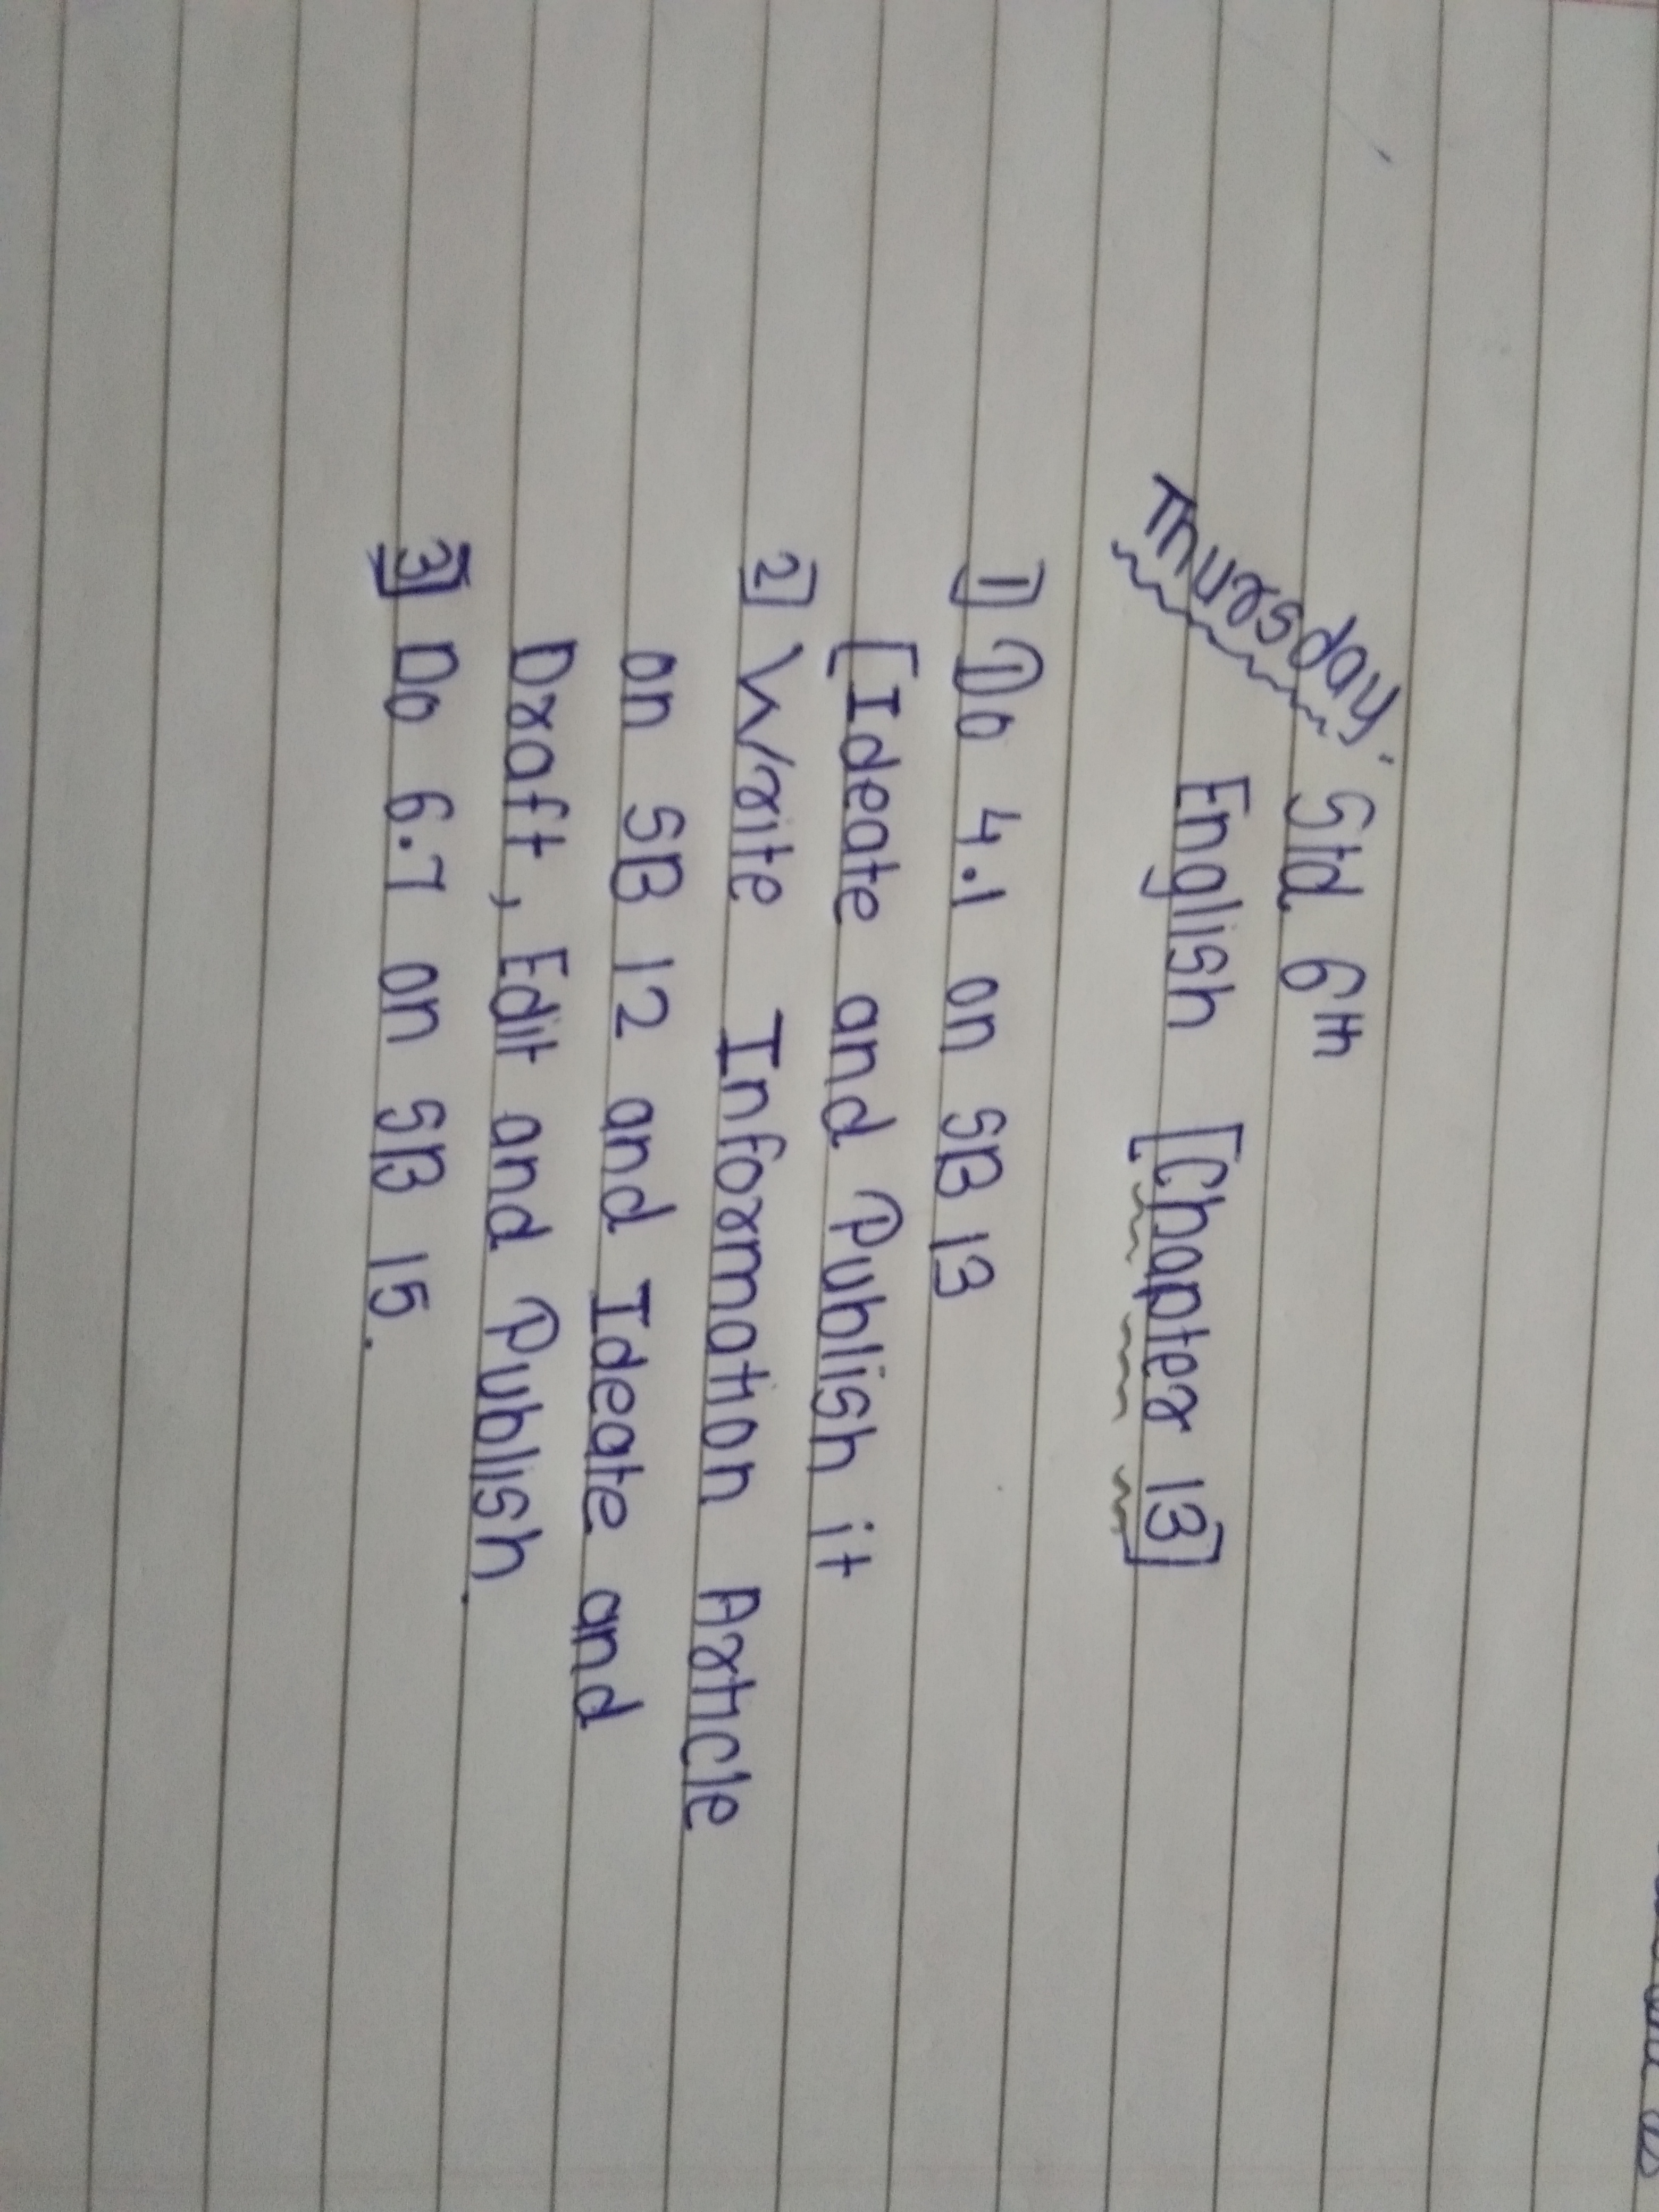 Thursday
Std. 6th
English [Chapter 13]
1] Do 4.1 on SB 13
[Ideate and Publish it
2] Write Information Article
on SB 12 and Ideate and
Draft, Edit and Publish.
3] Do 6.7 on SB 15.